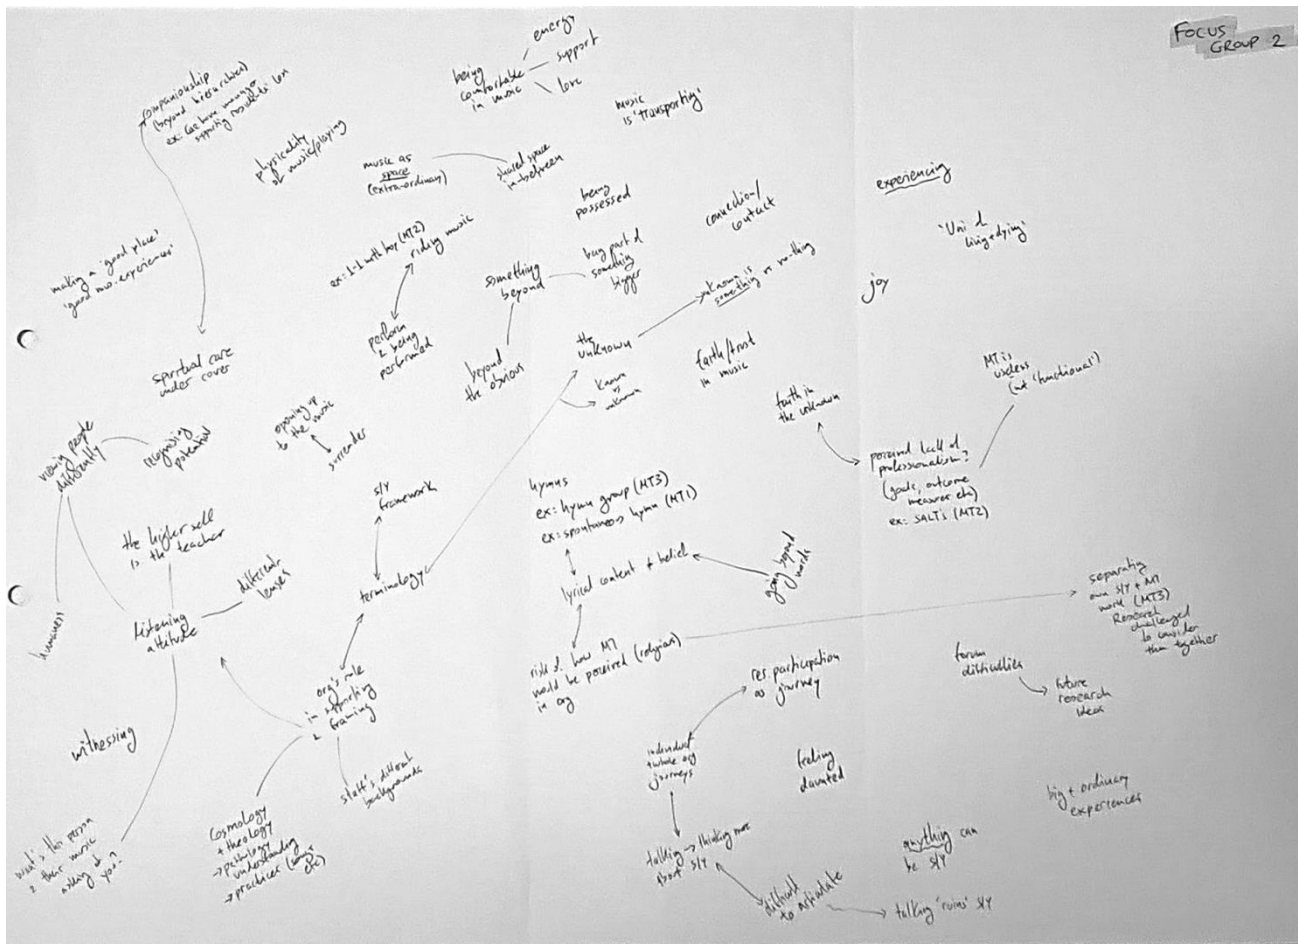 FOCUS
GROUP 2
companionship
(beyond hierarchies)
ex: care home manager
supporting residents' loss
physicality
of music/playing
making a 'good place'
'good mus. experiences'
spiritual care
under cover
being
comfortable
in music
energy
support
love
music
is 'transporting'
music as
space
(extra-ordinary)
shared space
in-between
being
possessed
ex: 1-1 with boy (MT2)
riding music
perform
& being
performed
something
beyond
being part of
something
bigger
beyond
the obvious
connection/
contact
the
unknown
unknown is
something vs no-thing
known
vs
unknown
faith/trust
in music
experiencing
living + dying'
joy
MT is
useless
(not 'functional')
faith in
the unknown
perceived lack of
professionalism?
(goals, outcome
measures etc)
ex: SALTs (MT2)
viewing people
differently
recognising
potential
opening up
to the music
surrender
s/Y
framework
terminology
the higher self
is the teacher
different
lenses
listening
attitude
humanness
witnessing
what's this person
& their music
asking of
you?
org's role
in supporting
& framing
staff's different
backgrounds
cosmology
+ theology
→ pathology
→ understanding
→ practices (
etc)
hymns
ex: hymn group (MT3)
ex: spontaneous hymn (MT1)
lyrical content + belief
going beyond
words
risk of how MT
would be perceived (religious)
in org
separating
own s/Y + MT
work (MT3)
Research
challenged
to consider
them together
res. participation
as journey
forum
difficulties
future
research
ideas
individual
+ whole org
journeys
feeling
daunted
big + ordinary
experiences
talking → thinking more
about s/Y
anything can
be s/Y
difficult
to articulate
talking 'ruins' s/Y